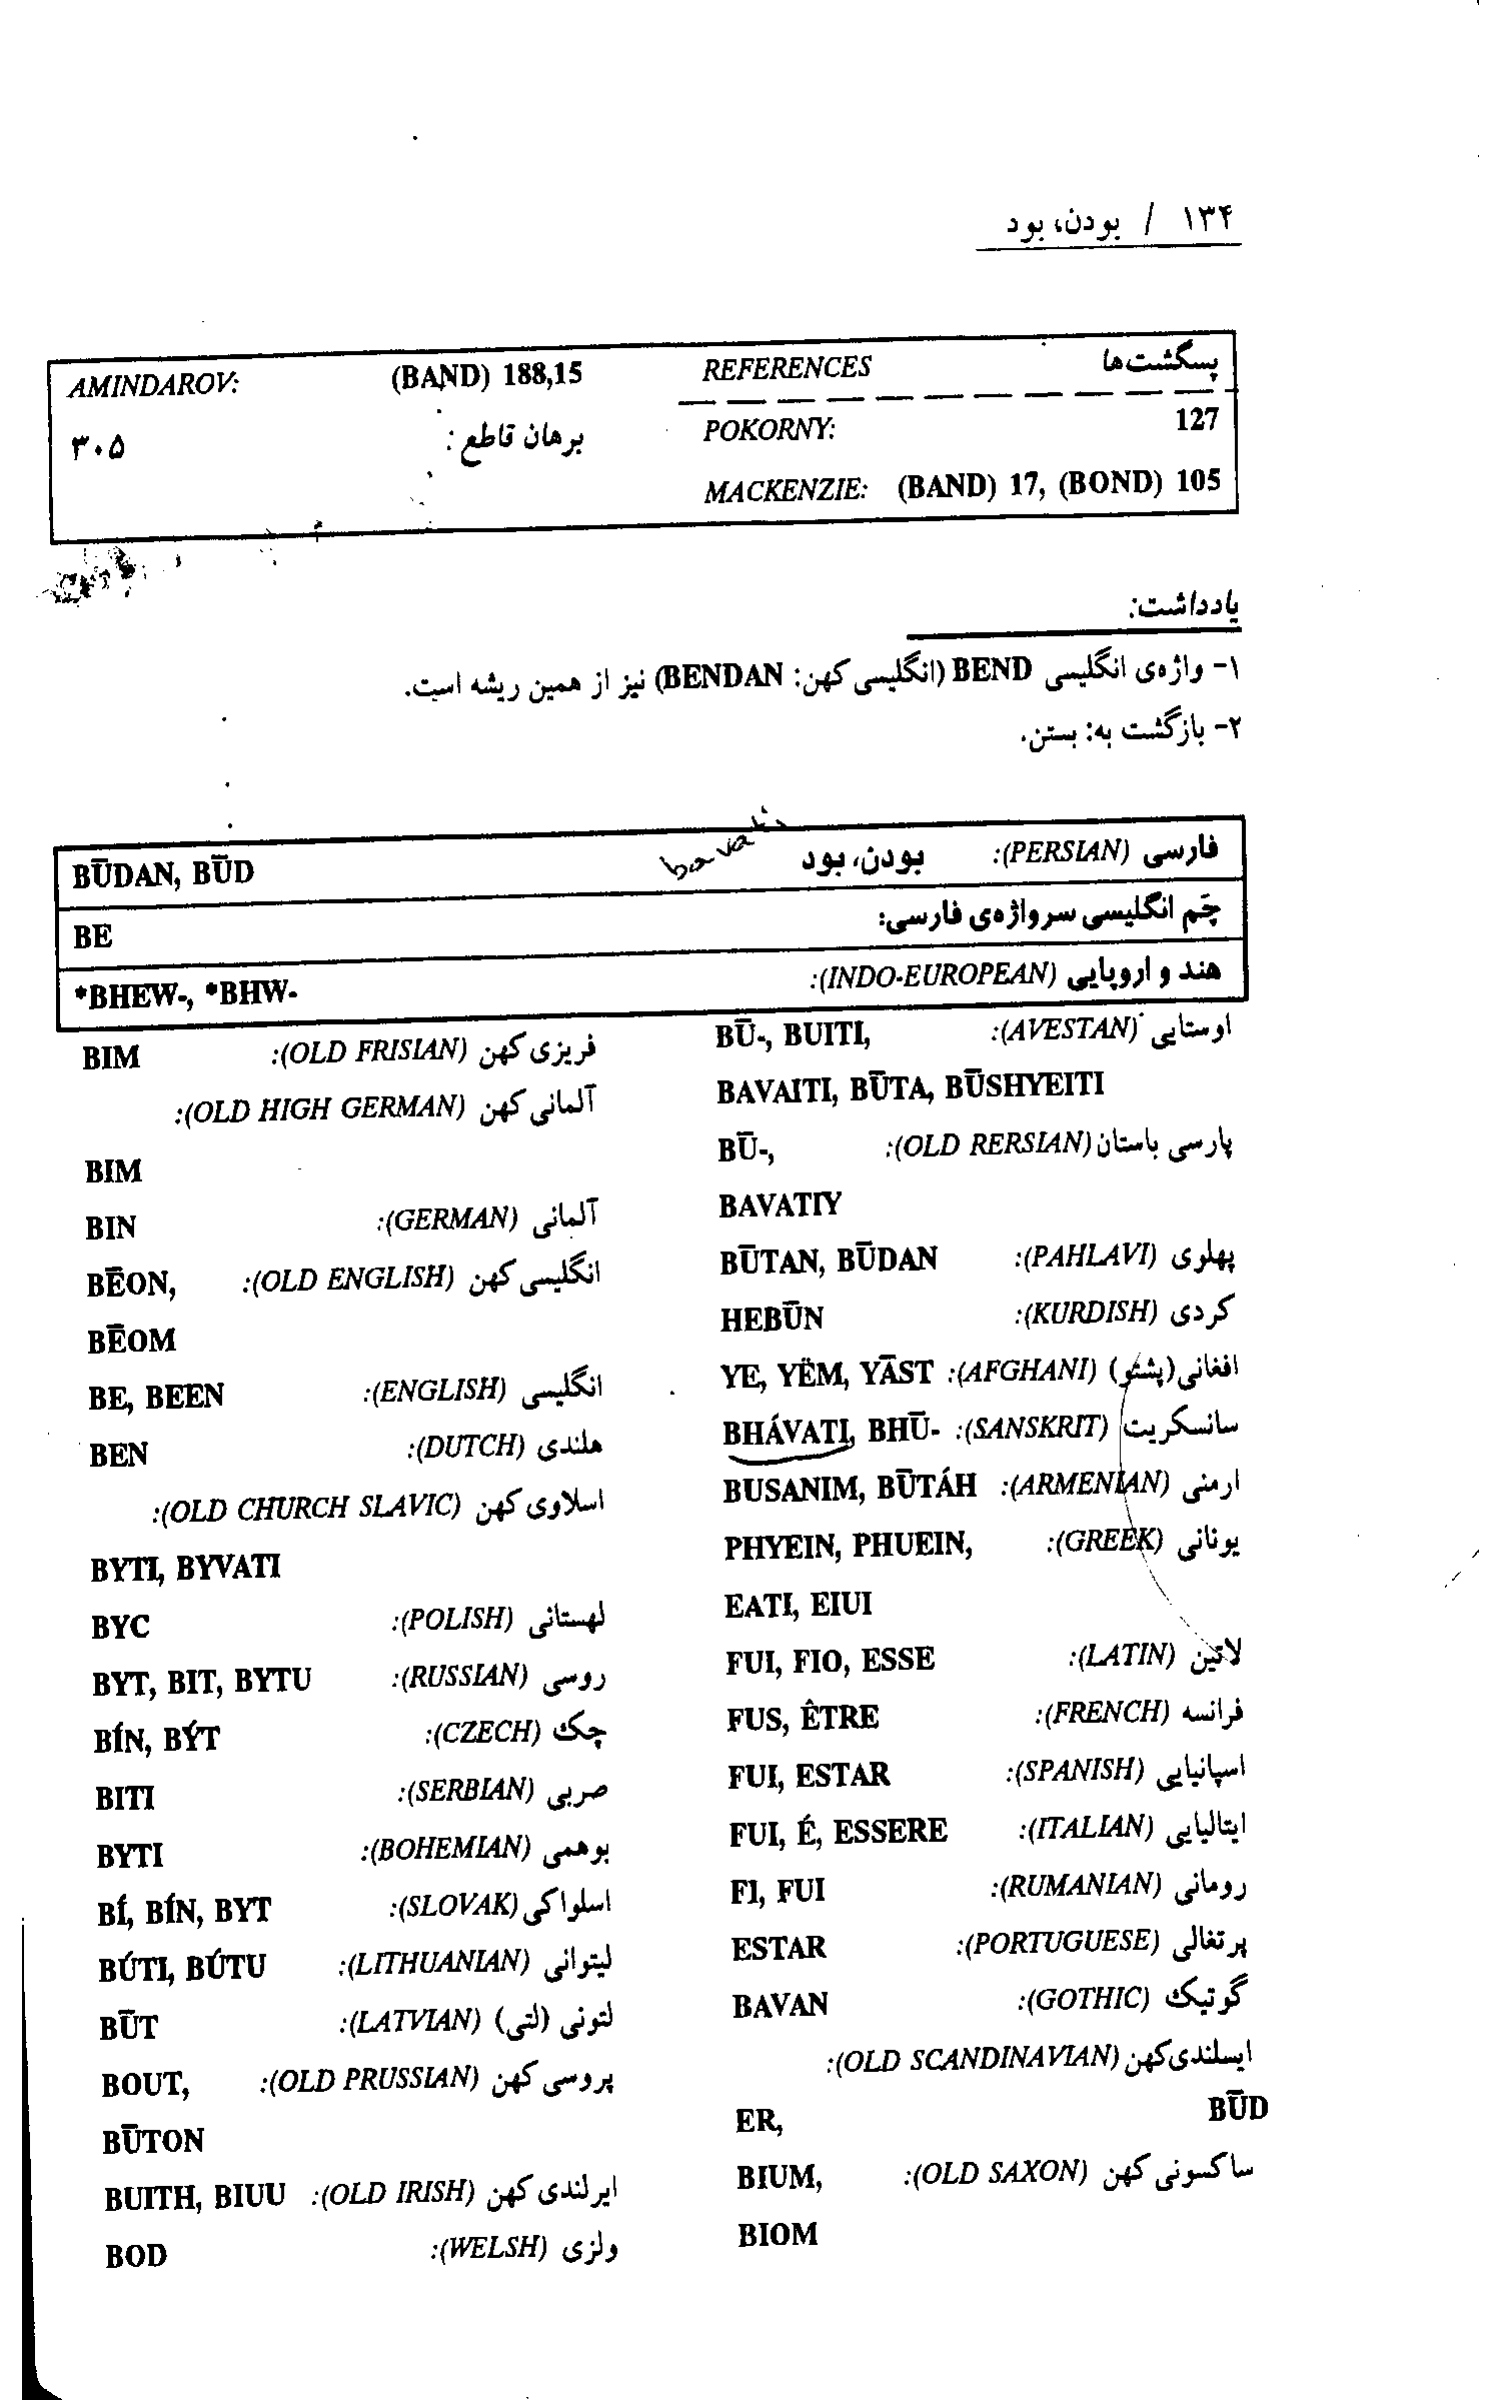 ۱۳۴ / بودن، بود
پسگشت‌ها REFERENCES
POKORNY: 127
MACKENZIE: (BAND) 17, (BOND) 105
AMINDAROV: (BAND) 188,15
برهان قاطع: ۳۰۵
یادداشت:
۱- واژه‌ی انگلیسی BEND (انگلیسی کهن: BENDAN) نیز از همین ریشه است.
۲- بازگشت به: بستن.
bavati
فارسی (PERSIAN): بودن، بود BŪDAN, BŪD
چَم انگلیسی سرواژه‌ی فارسی: BE
هند و اروپایی (INDO-EUROPEAN): *BHEW-, *BHW-
اوستایی (AVESTAN): BŪ-, BUITI,
BAVAITI, BŪTA, BŪSHYEITI
پارسی باستان (OLD RERSIAN): BŪ-,
BAVATIY
پهلوی (PAHLAVI): BŪTAN, BŪDAN
کردی (KURDISH): HEBŪN
افغانی (پشتو) (AFGHANI): YE, YËM, YĀST
سانسکریت (SANSKRIT): BHÁVATI, BHŪ-
ارمنی (ARMENIAN): BUSANIM, BŪTÁH
یونانی (GREEK): PHYEIN, PHUEIN,
EATI, EIUI
لاتین (LATIN): FUI, FIO, ESSE
فرانسه (FRENCH): FUS, ÊTRE
اسپانیایی (SPANISH): FUI, ESTAR
ایتالیایی (ITALIAN): FUI, É, ESSERE
رومانی (RUMANIAN): FI, FUI
پرتغالی (PORTUGUESE): ESTAR
گوتیک (GOTHIC): BAVAN
ایسلندی کهن (OLD SCANDINAVIAN):
ER, BŪD
ساکسونی کهن (OLD SAXON): BIUM,
BIOM
فریزی کهن (OLD FRISIAN): BIM
آلمانی کهن (OLD HIGH GERMAN):
BIM
آلمانی (GERMAN): BIN
انگلیسی کهن (OLD ENGLISH): BĒON,
BĒOM
انگلیسی (ENGLISH): BE, BEEN
هلندی (DUTCH): BEN
اسلاوی کهن (OLD CHURCH SLAVIC):
BYTI, BYVATI
لهستانی (POLISH): BYC
روسی (RUSSIAN): BYT, BIT, BYTU
چک (CZECH): BÍN, BÝT
صربی (SERBIAN): BITI
بوهمی (BOHEMIAN): BYTI
اسلواکی (SLOVAK): BÍ, BÍN, BYT
لیتوانی (LITHUANIAN): BÚTI, BÚTU
لتونی (لتی) (LATVIAN): BŪT
پروسی کهن (OLD PRUSSIAN): BOUT,
BŪTON
ایرلندی کهن (OLD IRISH): BUITH, BIUU
ولزی (WELSH): BOD